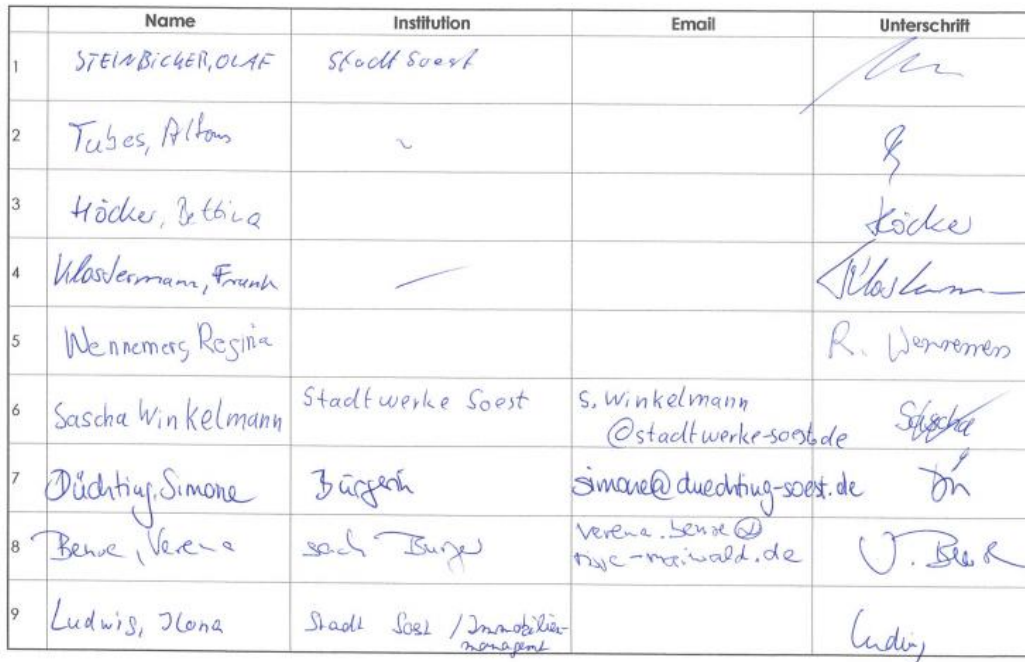 Name Institution Email Unterschrift
1 STEINBICKER, OLAF Stadt Soest
2 Tubes, Alfons
3 Höcker, Bettina Höcker
4 Klostermann, Frank
5 Wennemers, Regina R. Wennemers
6 Sascha Winkelmann Stadtwerke Soest S. Winkelmann
@stadtwerke-soest.de Sascha
7 Düchting, Simone Bürgerin simone@duechting-soest.de
8 Verena sach Bürger verena.
9 Ludwig, Ilona Stadt Soest / Immobilien-
managemt Ludwig